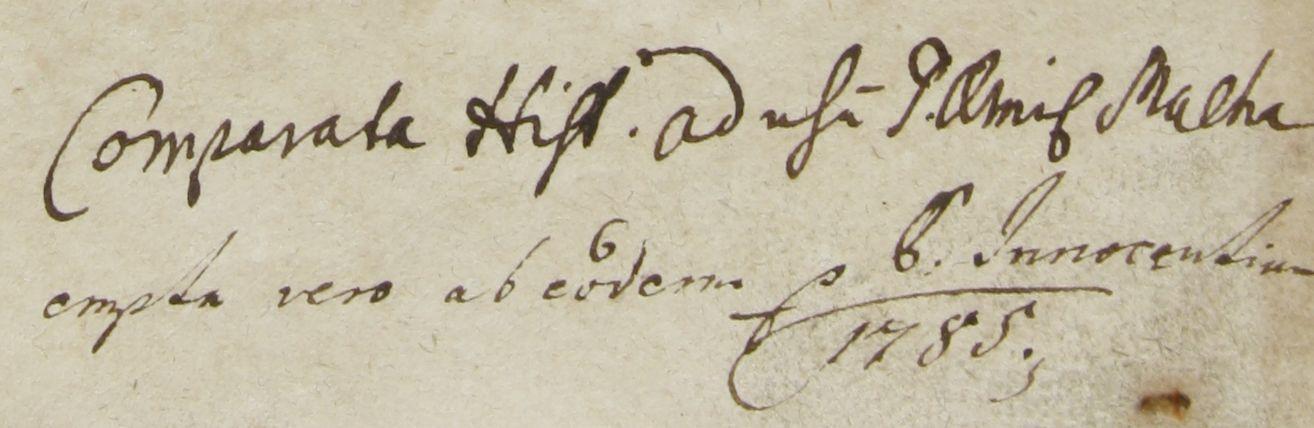 Comparata Hisp. ad usū P. Almis Malha
empta vero ab eodem p B. Innocentium
1785.